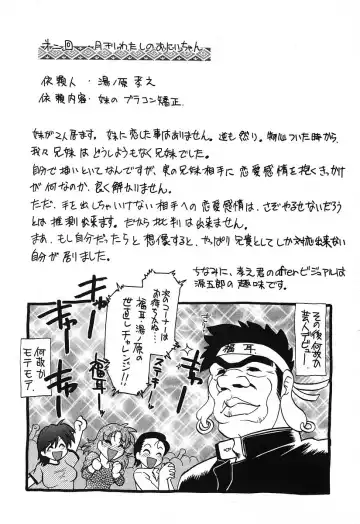 第二回 月ぎめわたしのおにいちゃん
依頼人 ・ 湯ノ原 孝之
依頼内容・ 妹のブラコン矯正。
妹が2人居ます。妹に恋した事はありません。逆も然り。物心ついた時から、
我々兄妹はどうしようもなく兄妹でした。
自分で描いといてなんですが、実の兄妹相手に恋愛感情を抱くきっかけ
が何なのか、良く解かりません。
ただ、手を出しちゃいけない相手への恋愛感情は、さぞやるせないだろう
とは推測出来ます。だから批判は出来ません。
まあ、もし自分だったらと想像すると、やっぱり兄貴としてしか対応出来ない
自分が居りました。
ちなみに、孝之君のafterビジュアルは
源五郎の趣味です。
その後何故か
芸人デビュー。
福耳
次のコーナーは
お待ちかねの
福耳湯ノ原の
世直しチャレンジ!!
キャー
キャー
ステキー
福耳
何故か
モテモテ。